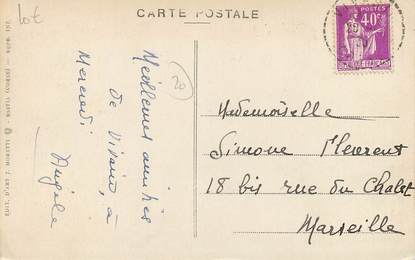 CARTE POSTALE
lot
20
Meilleures amitiés
de Vivario, à
Mercredi
Angèle
EDIT. D'ART J. MORETTI - BASTIA (CORSE) - REPR. INT.
POSTES
40c
Mademoiselle
Simone
18 bis rue du Chalet
Marseille